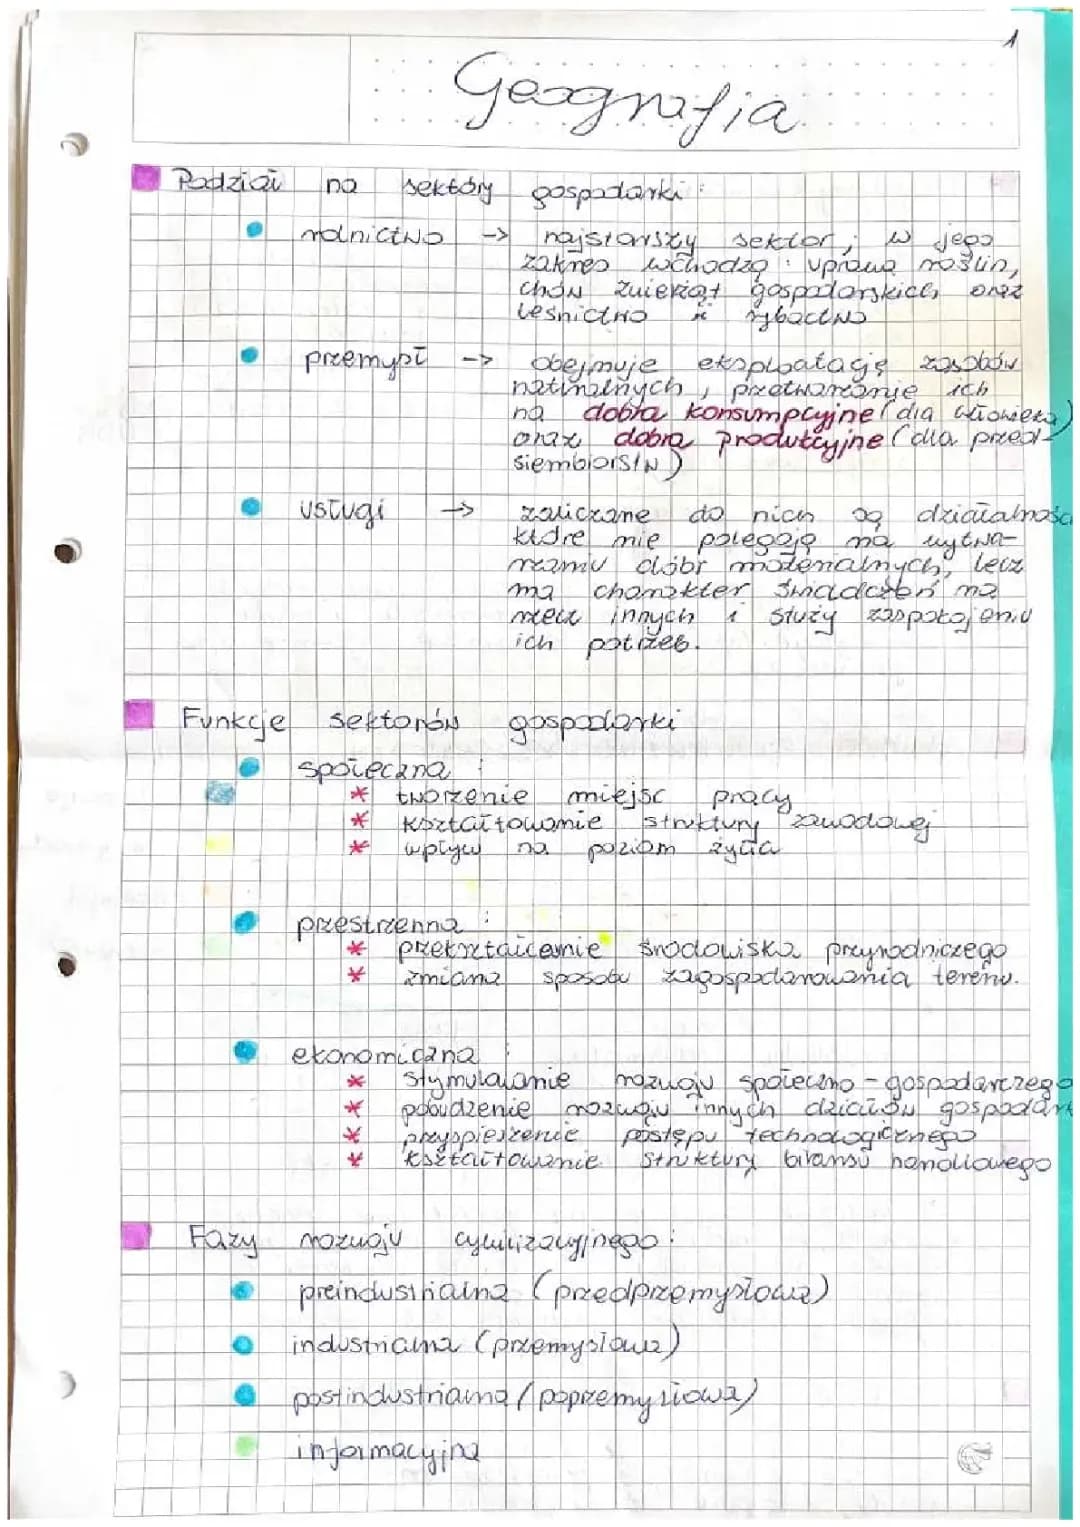 1
Geografia
Podział na sektory gospodarki:
rolnictwo -> najstarszy sektor, w jego
zakres wchodzą: uprawa roślin,
chów zwierząt gospodarskich oraz
leśnictwo i rybactwo
przemysł -> obejmuje eksploatację zasobów
naturalnych, przetwarzanie ich
na dobra konsumpcyjne (dla człowieka)
oraz dobra produkcyjne (dla przed-
siembiorstw)
usługi -> zaliczane do nich są działalności
które nie polegają na wytwa-
rzaniu dóbr materialnych, lecz
ma charakter świadczeń na
rzecz innych i służy zaspokojeniu
ich potrzeb.
Funkcje sektorów gospodarki
społeczna:
* tworzenie miejsc pracy
* kształtowanie struktury zawodowej
* wpływ na poziom życia
przestrzenna:
* przekształcenie środowiska przyrodniczego
* zmiana sposobu zagospodarowania terenu.
ekonomiczna:
* stymulowanie rozwoju społeczno-gospodarczego
* pobudzenie rozwoju innych działów gospodark
* przyspieszenie postępu technologicznego
* kształtowanie struktury bilansu handlowego
Fazy rozwoju cywilizacyjnego:
preindustrialna (przedprzemysłowa)
industrialna (przemysłowa)
postindustrialna (poprzemysłowa)
informacyjna